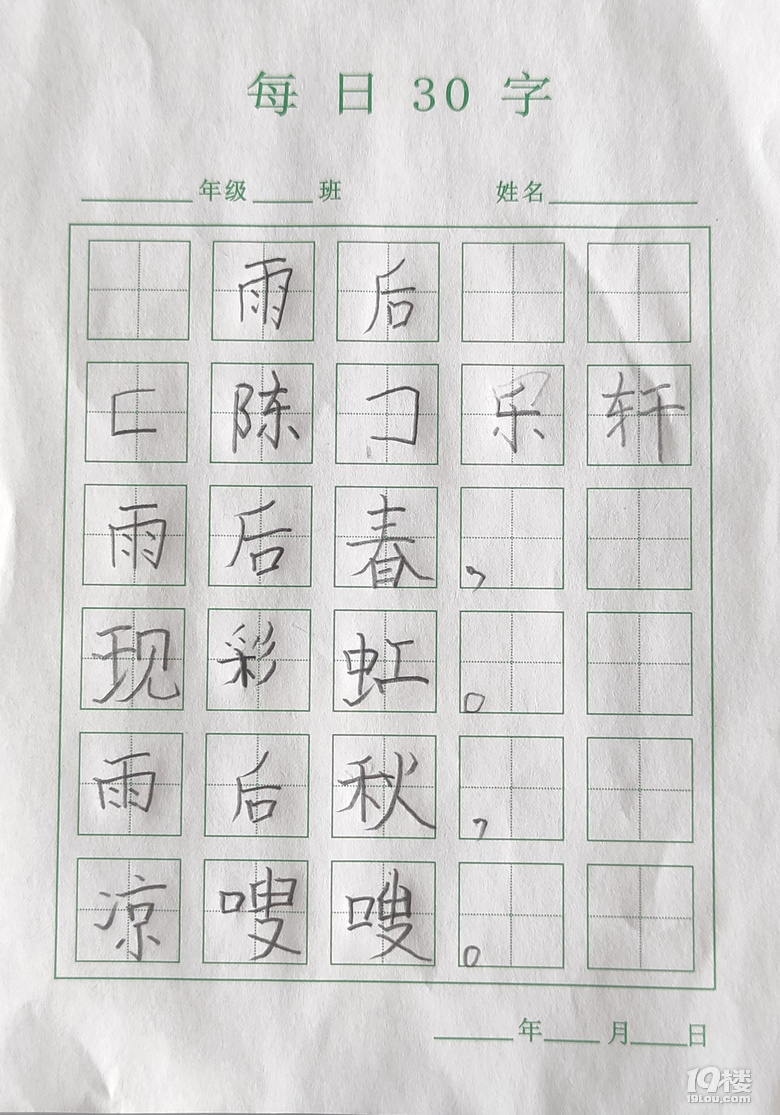 每日30字
____年级____班 姓名________
雨后
[陈]乐轩
雨后春，
现彩虹。
雨后秋，
凉嗖嗖。
____年____月____日
19楼
19lou.com